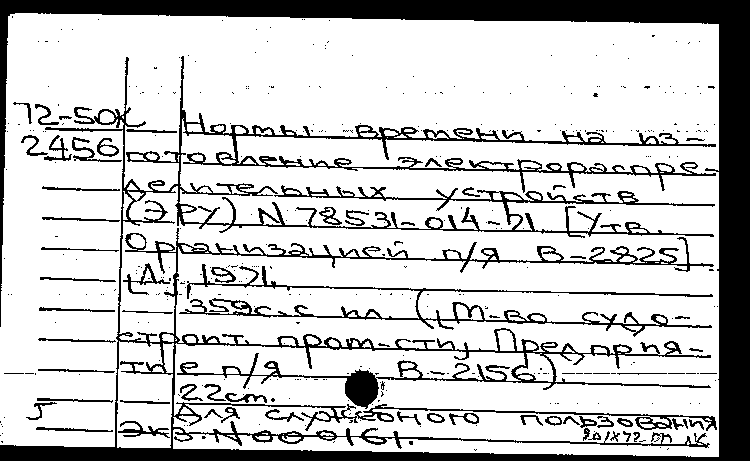 72-50К Нормы времени на из-
2456 готовление электрораспре-
делительных устройств
(ЭРУ). N 78531-014-71. [Утв.
Организацией п/я В-2825]
[Л], 1971.
359с. с ил. ([М-во судо-
строит. пром-сти] Предприя-
тие п/я В-2156).
22см.
Для служебного пользования
Экз. N 000161.